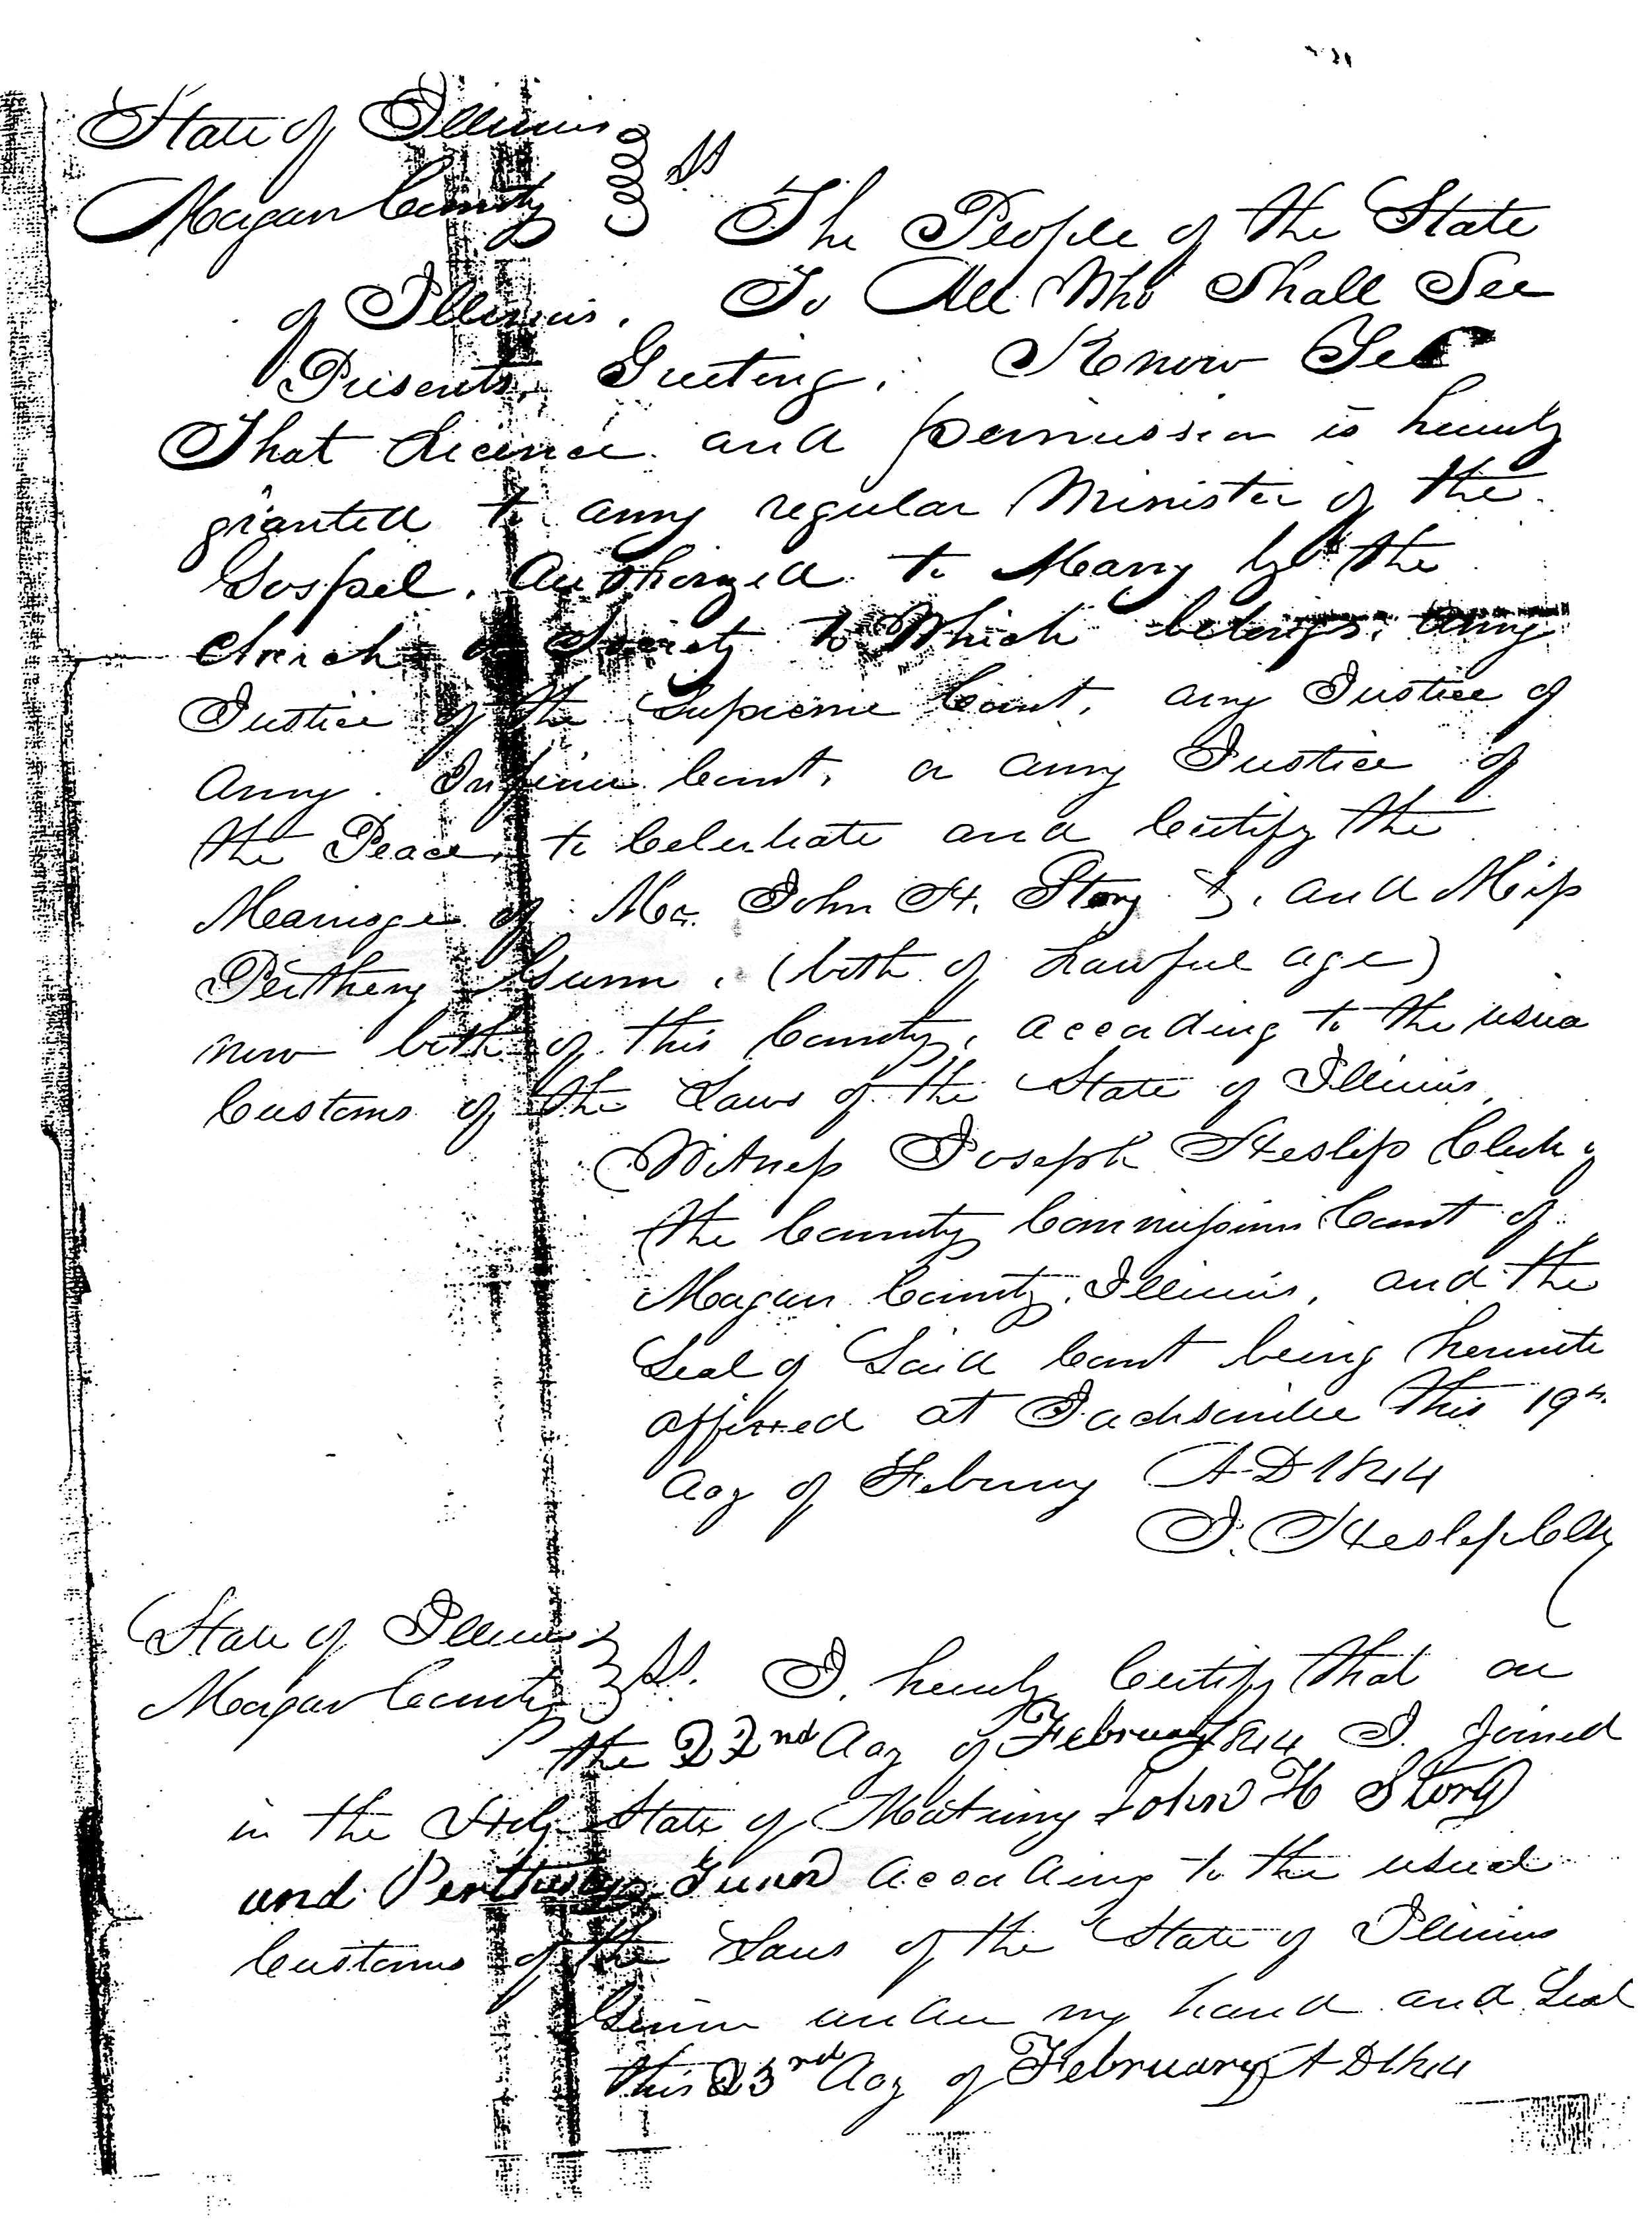 State of Illinois
Morgan County } ss
The People of the State
of Illinois. To All Who Shall See
Presents, Greeting. Know Yee
That Licence and permission is hereby
granted to anny regular Minister of the
Gospel. Authorized to Marry by the
church or Society to Which belongs. anny
Justice of the Supreme Court, any Justice of
anny Inferior Court, or anny Justice of
the Peace, to Celebrate and Certify the
Marriage of Mr. John H. Story and Miss
Pertheny Gunn. (both of Lawful age)
now both of this County, according to the usua
Customs of the Laws of the State of Illinois,
Witness Joseph Heslep Clerk of
the County Commissioners Court of
Morgan County, Illinois, and the
Seal of Said Court being hereunto
affixed at Jacksonville this 19th
day of February A-D 1844
J. Heslep Clk
State of Illinois
Morgan County } ss. I hereby Certify that on
the 22nd day of February 1844 I Joined
in the Holy State of Matrimony John H Story
and Gunn according to the usual
Customs of the Laws of the State of Illinois
Given under my hand and Seal
this 23rd day of February A D 1844